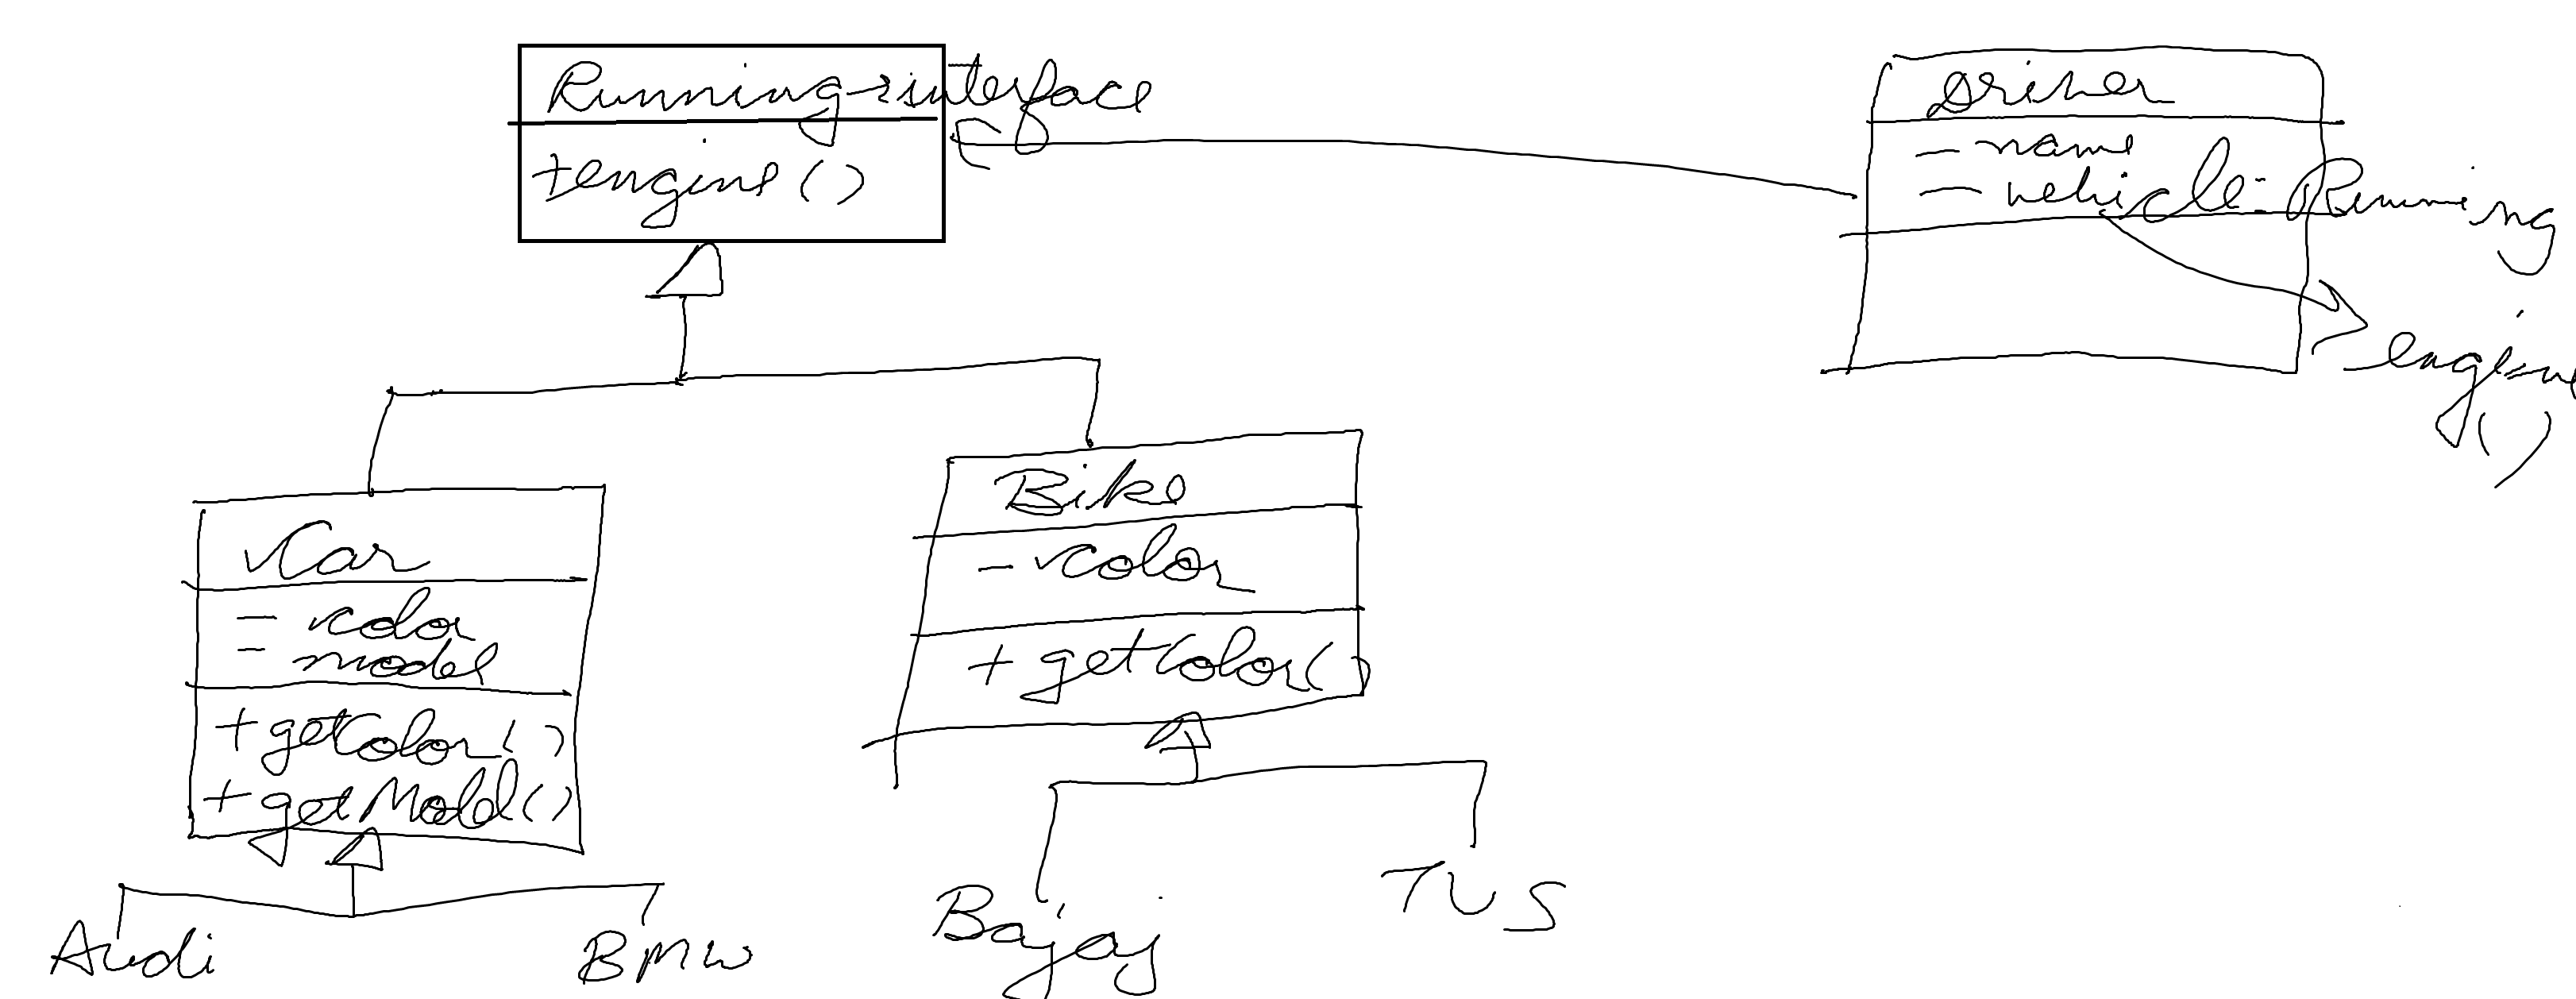 Running → interface
+engine()
Driver
- name
- vehicle: Running
engine
()
Car
- color
- model
+getColor()
+getModel()
Bike
- color
+ getColor()
Audi
BMW
Bajaj
TVS